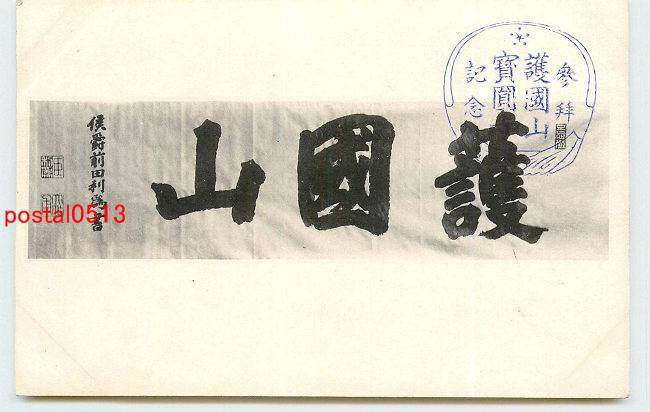 護國山
侯爵前田利為書
參拜
護國山
寶圓
記念
postal0513